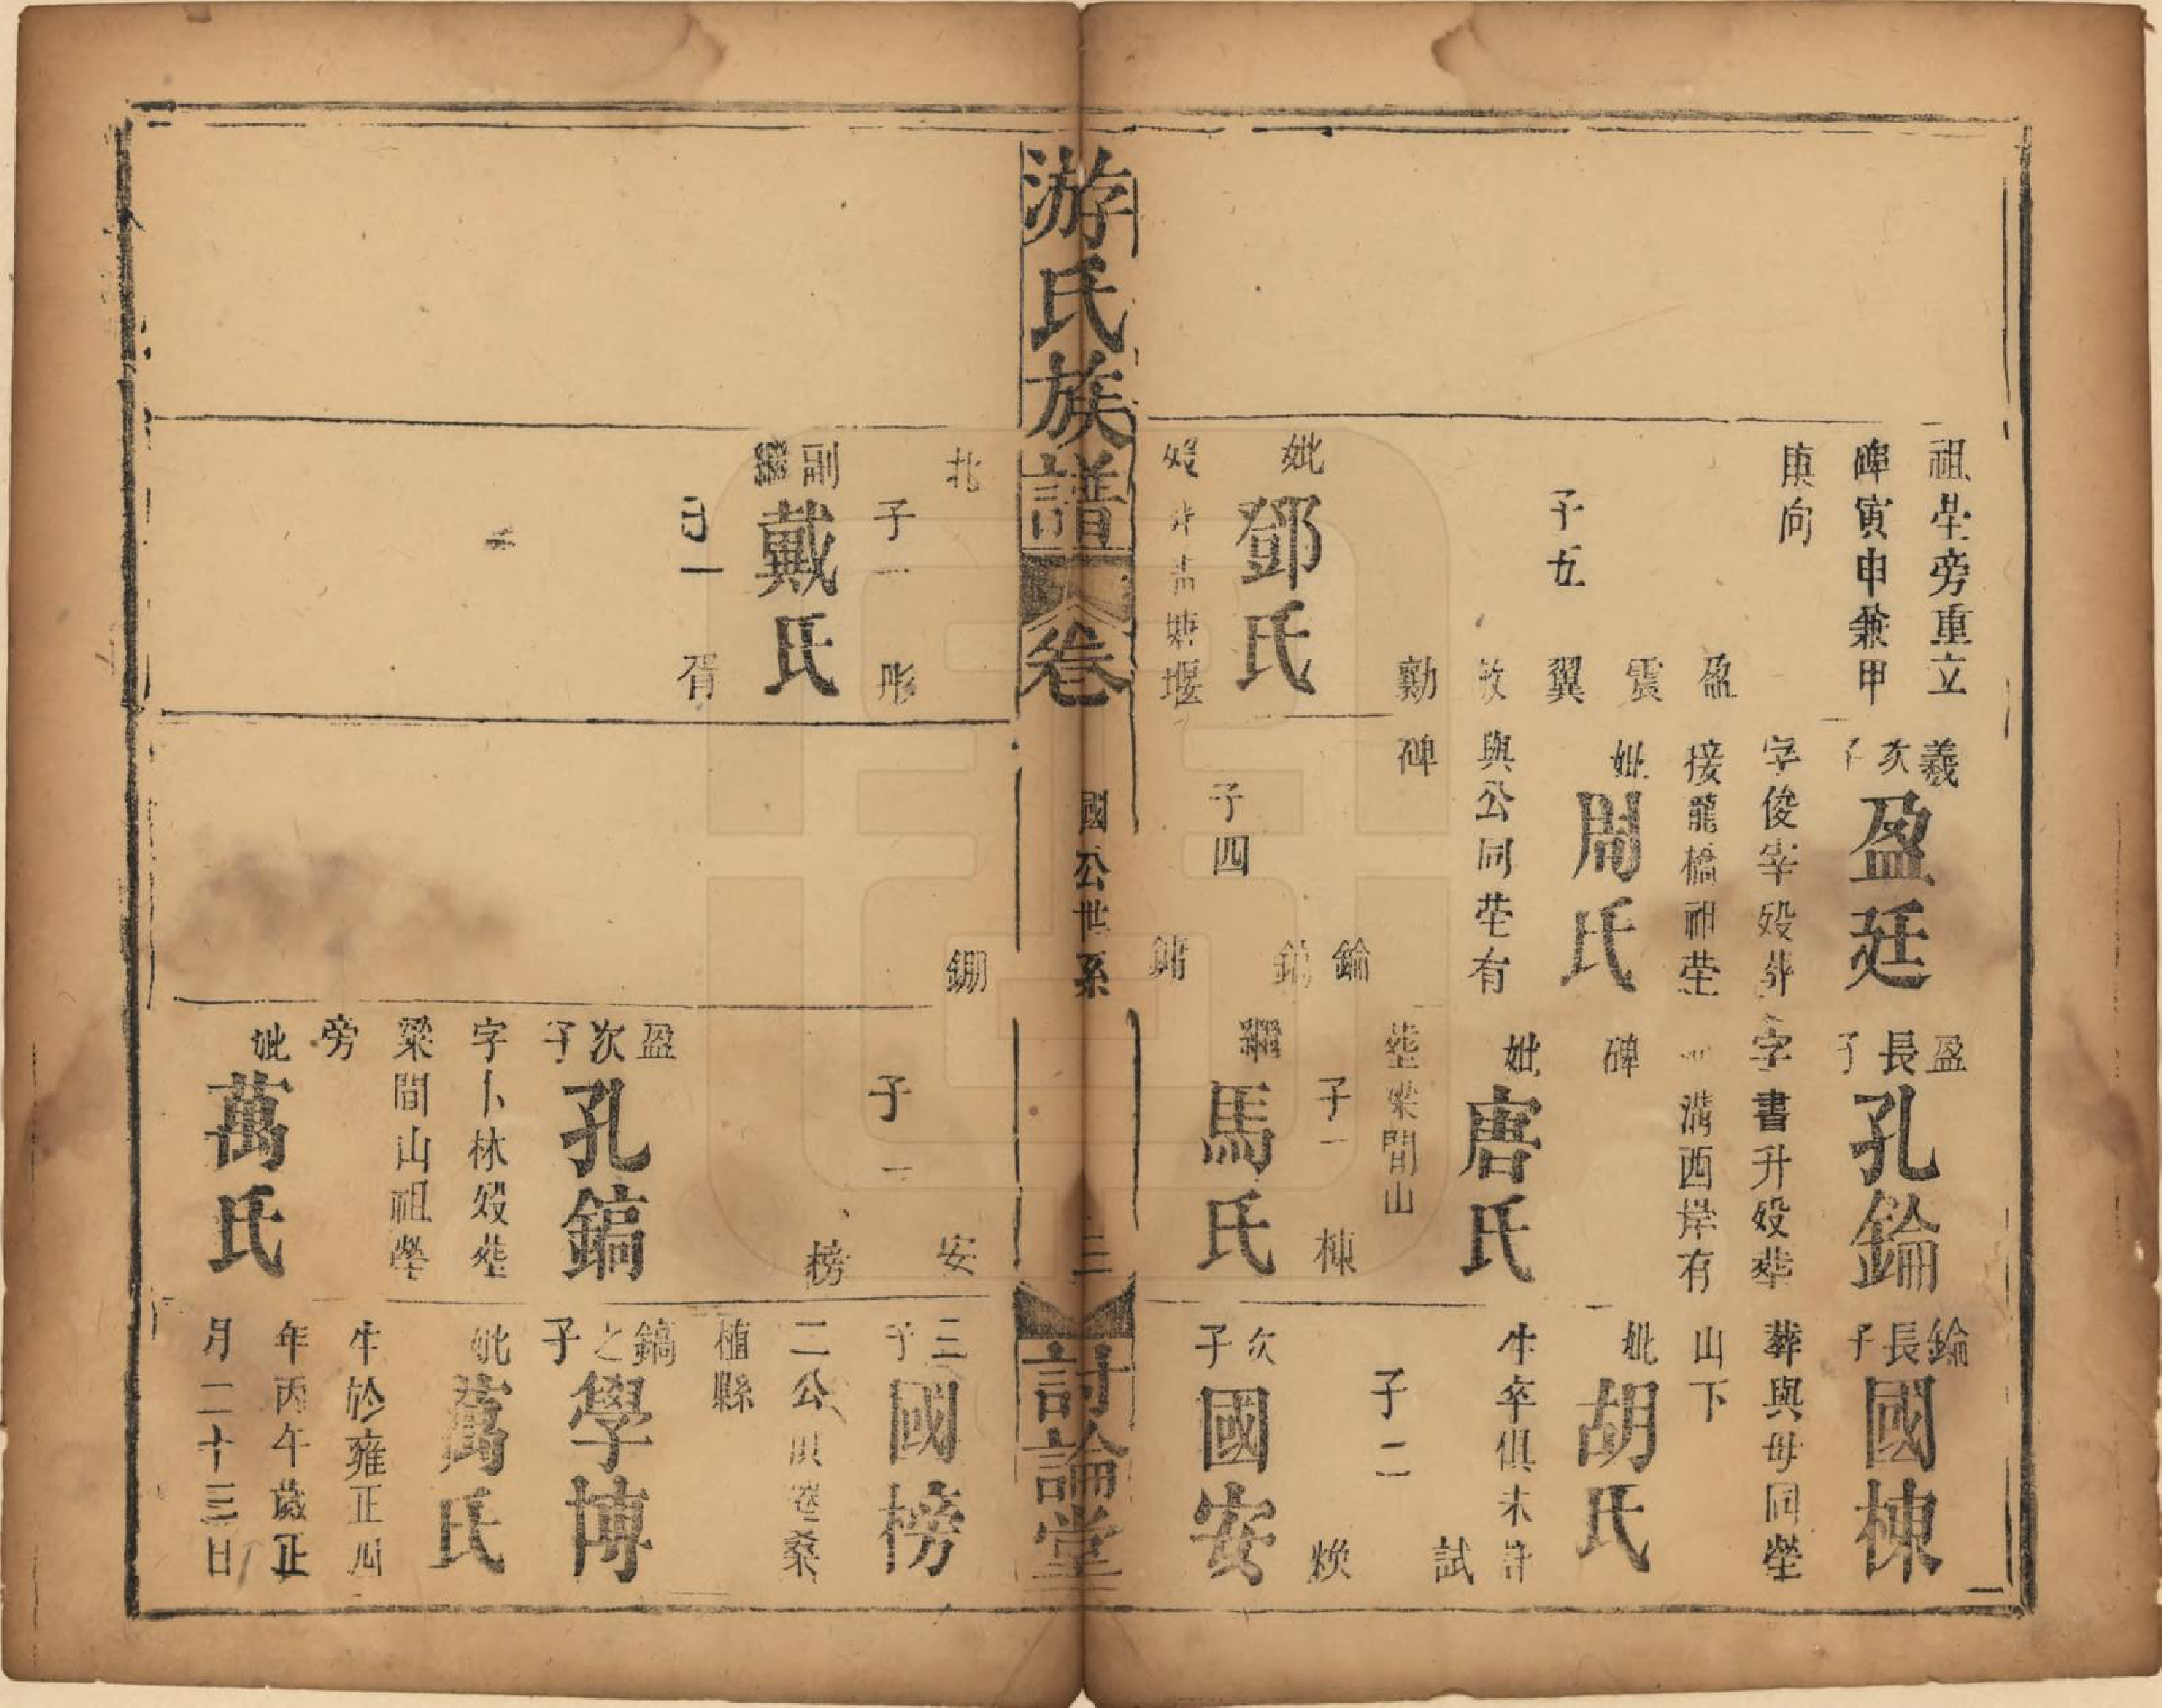 祖塋旁重立
碑寅申兼甲
庚向
子五
盈
震
翼
敦
勷
妣
鄧氏
歿
塘堰
羲次子
盈廷
字俊宰歿葬
接龍橋祖塋
妣
周氏
與公同塋有
碑
子四
錀
鎬
鏞
盈長子
孔錀
字書升歿葬
溝西岸有
碑
妣
唐氏
葬梁間山
子一
棟
繼
馬氏
錀長子
國棟
葬與母同塋
山下
妣
胡氏
生卒俱未詳
子二
試
煥
次子
國安
游氏族譜
卷
國公世系
三
討論堂
北
子一
彤
副繼
戴氏
子一
胥
鎙
安
子一
榜
盈次子
孔鎬
字卜林歿葬
梁間山祖塋
旁
妣
萬氏
三子
國榜
二公俱葬桑
植縣
鎬之子
學博
妣
萬氏
生於雍正四
年丙午歲正
月二十三日